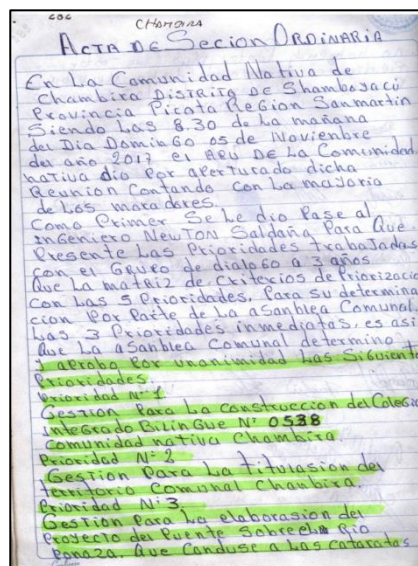 CHAMBIRA
ACTA DE Secion ORDINARIA
En La Comunidad Nativa de
Chambira DISTRITO DE Shamboyacu
Provincia Picota Region Sanmartin
Siendo Las 8.30 de La mañana
del Dia Domingo 05 de Noviembre
del año 2017 el APU DE La Comunidad
nativa dio Por aperturado dicha
Reunion Contando con La mayoria
de Los moradores.
Como Primer Se Le dio Pase al
inGeniero NewTON Saldaña Para Que
Presente Las Prioridades trabajadas
con el GRUPO de dialoGo a 3 años
Que La matriz de Criterios de Priorizacio
con Las 5 Prioridades, Para su determina
cion Por Parte de La asanblea Comunal.
Las 3 Prioridades inmediatas, es asi
Que La asanblea Comunal determino
y aprobo Por unanimidad Las Siguiente
Prioridades.
Prioridad Nº 1
Gestion Para La construccion del Colegio
integrado BilinGue Nº 0538
Comunidad nativa Chambira.
Prioridad Nº 2
Gestion Para La titulasion del
territorio Comunal Chanbira.
Prioridad Nº 3.
Gestion Para La elaborasion del
Proyecto del Puente Sobre el Rio
Ponaza. Que Conduse a Las Cataratas